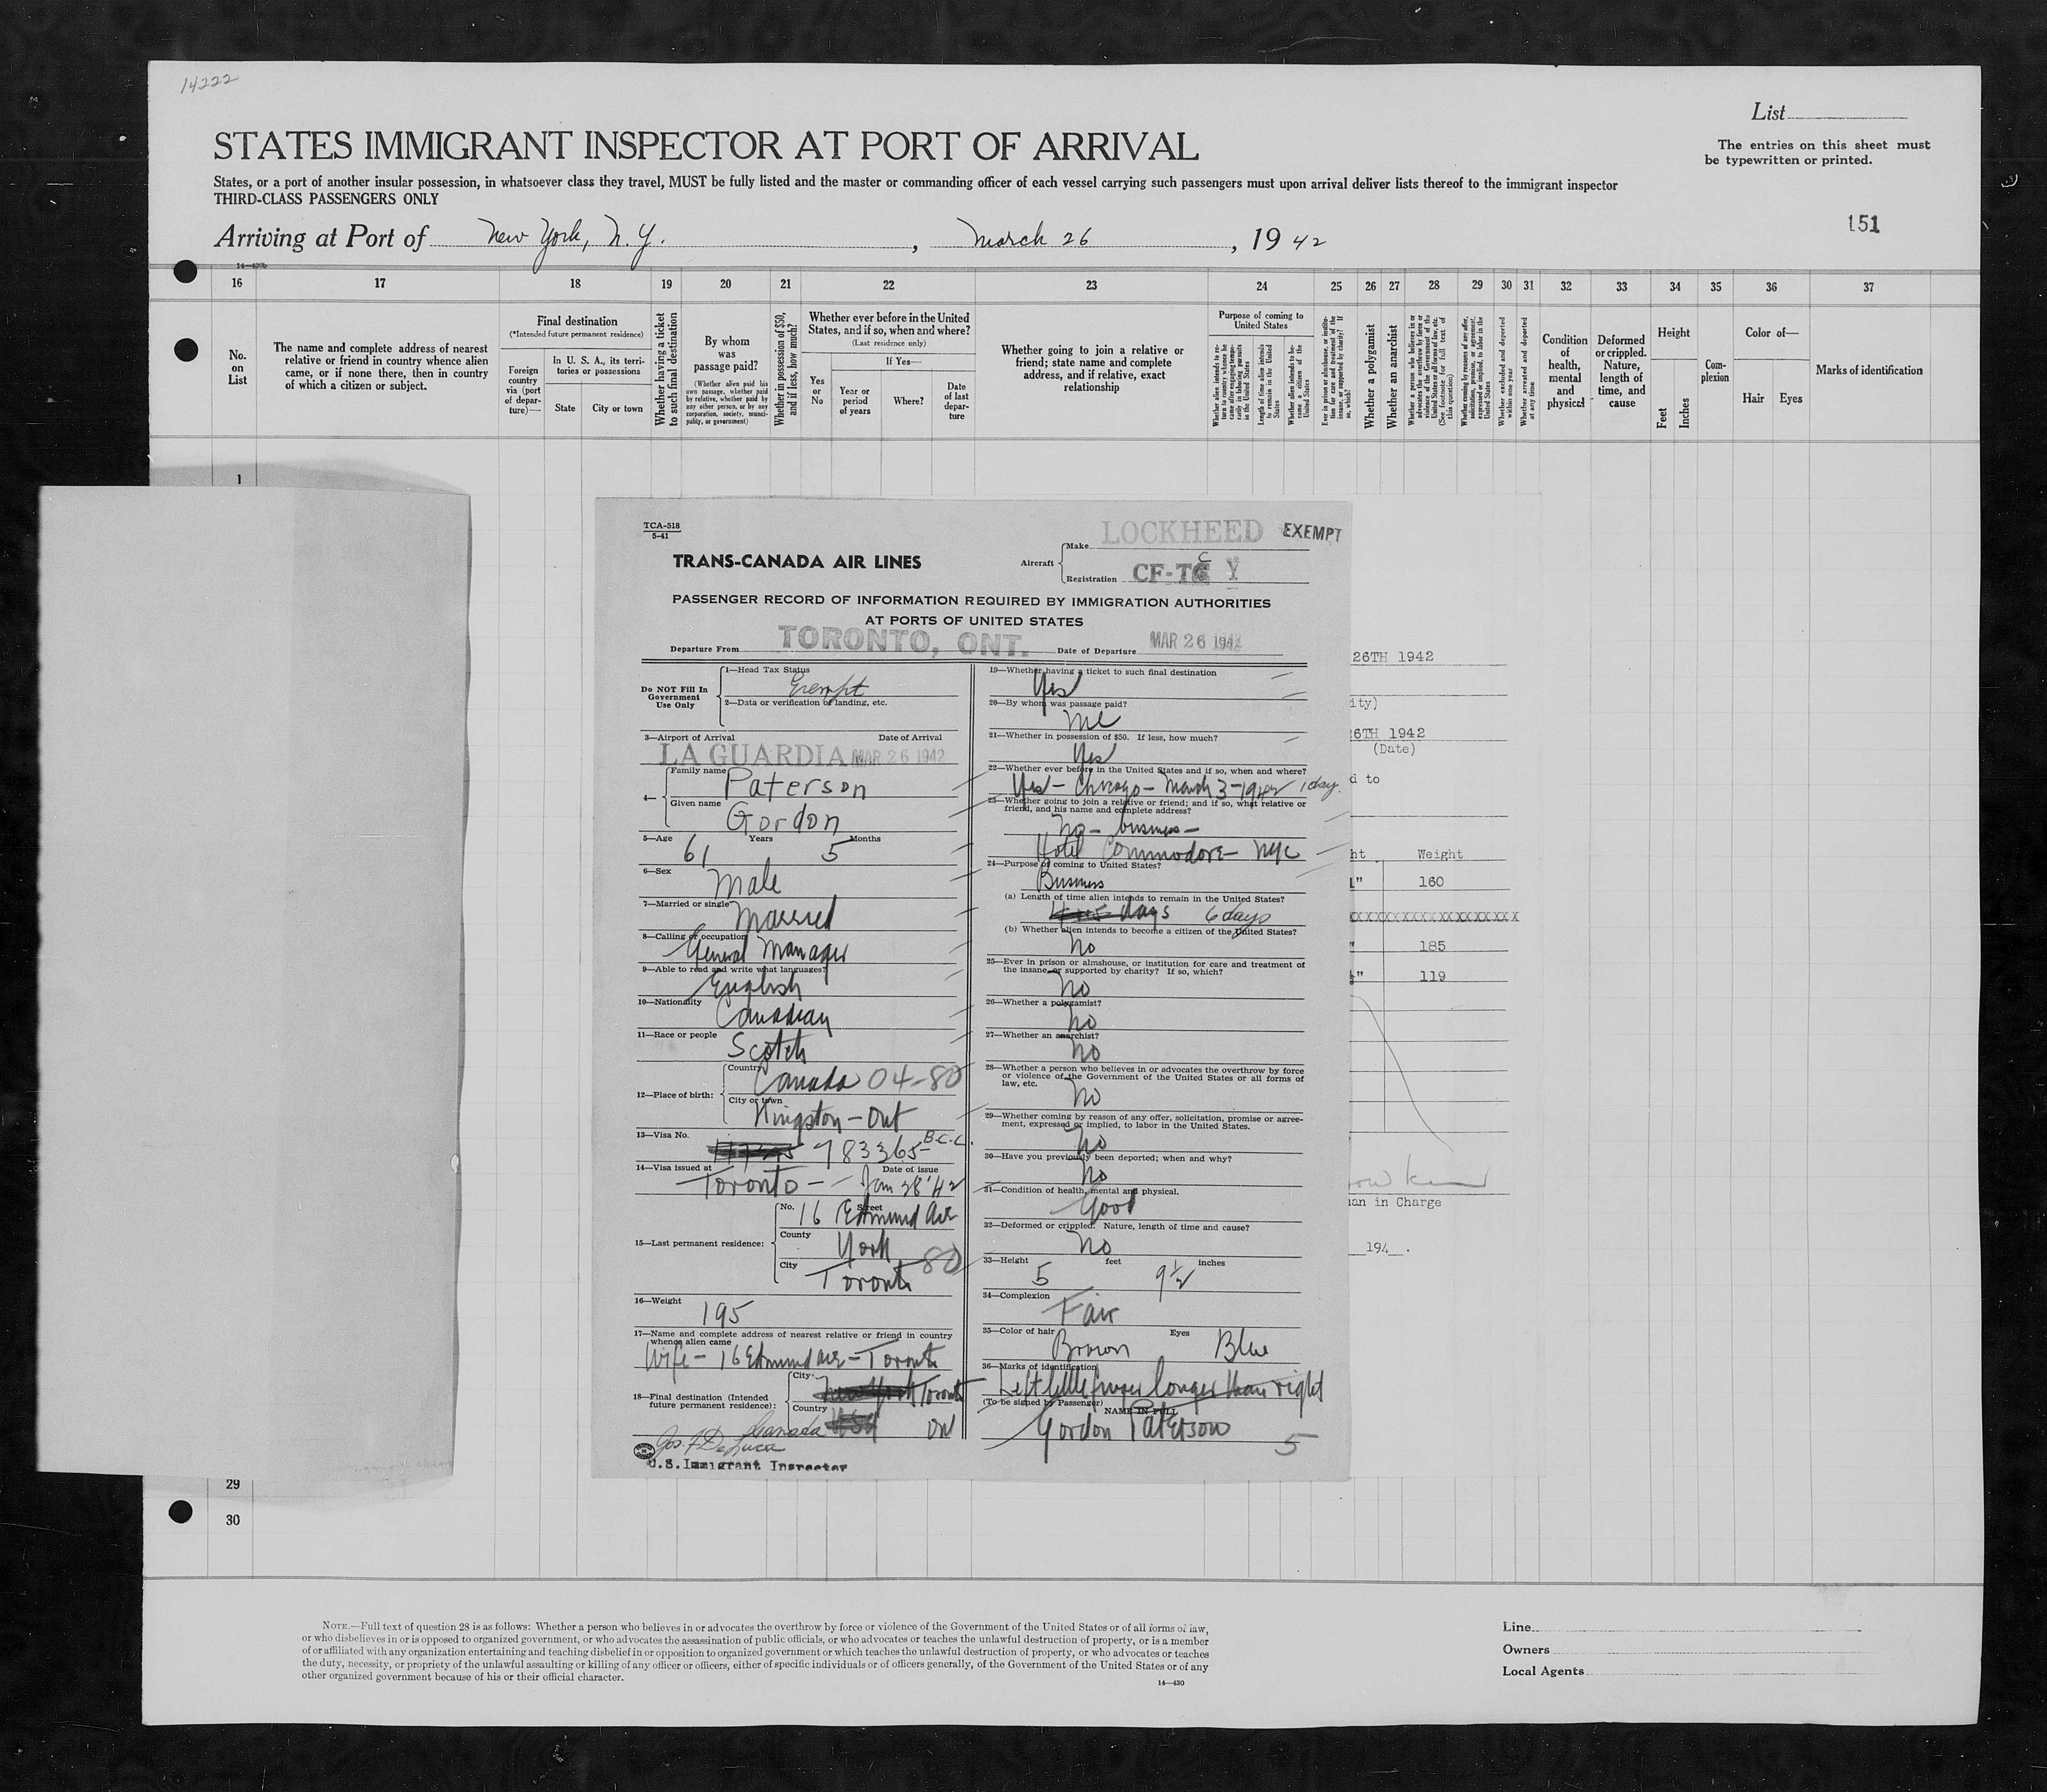 14222
List
The entries on this sheet must
be typewritten or printed.
STATES IMMIGRANT INSPECTOR AT PORT OF ARRIVAL
States, or a port of another insular possession, in whatsoever class they travel, MUST be fully listed and the master or commanding officer of each vessel carrying such passengers must upon arrival deliver lists thereof to the immigrant inspector
THIRD-CLASS PASSENGERS ONLY
151
Arriving at Port of New York, N.Y., March 26, 1942
16 17 18 19 20 21 22 23 24 25 26 27 28 29 30 31 32 33 34 35 36 37
No. on List
The name and complete address of nearest
relative or friend in country whence alien
came, or if none there, then in country
of which a citizen or subject.
Final destination
(*Intended future permanent residence)
Foreign country via (port of departure)—
In U. S. A., its territories or possessions
State
City or town
Whether having a ticket to such final destination
By whom was passage paid?
(Whether alien paid his own passage, whether paid by relative, whether paid by any other person, or by any corporation, society, municipality, or government)
Whether in possession of $50, and if less, how much?
Whether ever before in the United
States, and if so, when and where?
(Last residence only)
Yes or No
If Yes—
Year or period of years
Where?
Date of last departure
Whether going to join a relative or
friend; state name and complete
address, and if relative, exact
relationship
Purpose of coming to
United States
Whether alien intends to return to country whence he came after engaging temporarily in laboring pursuits in the United States
Length of time alien intends to remain in the United States
Whether alien intends to become a citizen of the United States
Ever in prison or almshouse, or institution for care and treatment of the insane, or supported by charity? If so, which?
Whether a polygamist
Whether an anarchist
Whether a person who believes in or advocates the overthrow by force or violence of the Government of the United States or all forms of law, etc. (See footnote for full text of this question)
Whether coming by reasons of any offer, solicitation, promise, or agreement, expressed or implied, to labor in the United States
Whether excluded and deported within one year
Whether arrested and deported at any time
Condition of health, mental and physical
Deformed or crippled. Nature, length of time, and cause
Height
Feet
Inches
Complexion
Color of—
Hair
Eyes
Marks of identification
1
TCA-518
5-41
TRANS-CANADA AIR LINES
Aircraft
Make LOCKHEED
EXEMPT
Registration CF-TC Y
PASSENGER RECORD OF INFORMATION REQUIRED BY IMMIGRATION AUTHORITIES
AT PORTS OF UNITED STATES
Departure From TORONTO, ONT. Date of Departure MAR 26 1942
Do NOT Fill In
Government
Use Only
1—Head Tax Status
Exempt
2—Data or verification of landing, etc.
3—Airport of Arrival Date of Arrival
LA GUARDIA MAR 26 1942
4— Family name Paterson
Given name Gordon
5—Age 61 Years 5 Months
6—Sex Male
7—Married or single Married
8—Calling or occupation
General Manager
9—Able to read and write what languages?
English
10—Nationality Canadian
11—Race or people
Scotch
12—Place of birth:
Country Canada 04-80
City or town
Kingston - Ont
13—Visa No. 783365 B.C.C.
14—Visa issued at Date of issue
Toronto - Jan 28 '42
15—Last permanent residence:
No. 16 Street Edmund Ave
County York
City Toronto 80
16—Weight 195
17—Name and complete address of nearest relative or friend in country
whence alien came
Wife - 16 Edmund Ave - Toronto
18—Final destination (Intended
future permanent residence):
City: New York Toronto
Country Canada USA Ont
Jos. F. DeLuca
U.S. Immigrant Inspector
19—Whether having a ticket to such final destination
Yes
20—By whom was passage paid?
Me
21—Whether in possession of $50. If less, how much?
Yes
22—Whether ever before in the United States and if so, when and where?
Yes - Chicago - March 3 - 1942 1 day.
23—Whether going to join a relative or friend; and if so, what relative or
friend, and his name and complete address?
No - business -
Hotel Commodore - NYC
24—Purpose of coming to United States?
Business
(a) Length of time alien intends to remain in the United States?
days 6 days
(b) Whether alien intends to become a citizen of the United States?
No
25—Ever in prison or almshouse, or institution for care and treatment of
the insane, or supported by charity? If so, which?
No
26—Whether a polygamist?
No
27—Whether an anarchist?
No
28—Whether a person who believes in or advocates the overthrow by force
or violence of the Government of the United States or all forms of
law, etc.
No
29—Whether coming by reason of any offer, solicitation, promise or agree-
ment, expressed or implied, to labor in the United States.
No
30—Have you previously been deported; when and why?
No
31—Condition of health, mental and physical.
Good
32—Deformed or crippled. Nature, length of time and cause?
No
33—Height 5 feet 9½ inches
34—Complexion
Fair
35—Color of hair Brown Eyes Blue
36—Marks of identification
Left little finger longer than right
(To be signed by Passenger) NAME IN FULL
Gordon Paterson
5
26TH 1942
ity)
26TH 1942
(Date)
d to
ht Weight
1" 160
XXXXXXXXXXXXXXXXXXX
" 185
½" 119
an in Charge
194 .
29
30
NOTE.—Full text of question 28 is as follows: Whether a person who believes in or advocates the overthrow by force or violence of the Government of the United States or of all forms of law,
or who disbelieves in or is opposed to organized government, or who advocates the assassination of public officials, or who advocates or teaches the unlawful destruction of property, or is a member
of or affiliated with any organization entertaining and teaching disbelief in or opposition to organized government or which teaches the unlawful destruction of property, or who advocates or teaches
the duty, necessity, or propriety of the unlawful assaulting or killing of any officer or officers, either of specific individuals or of officers generally, of the Government of the United States or of any
other organized government because of his or their official character.
14—430
Line
Owners
Local Agents